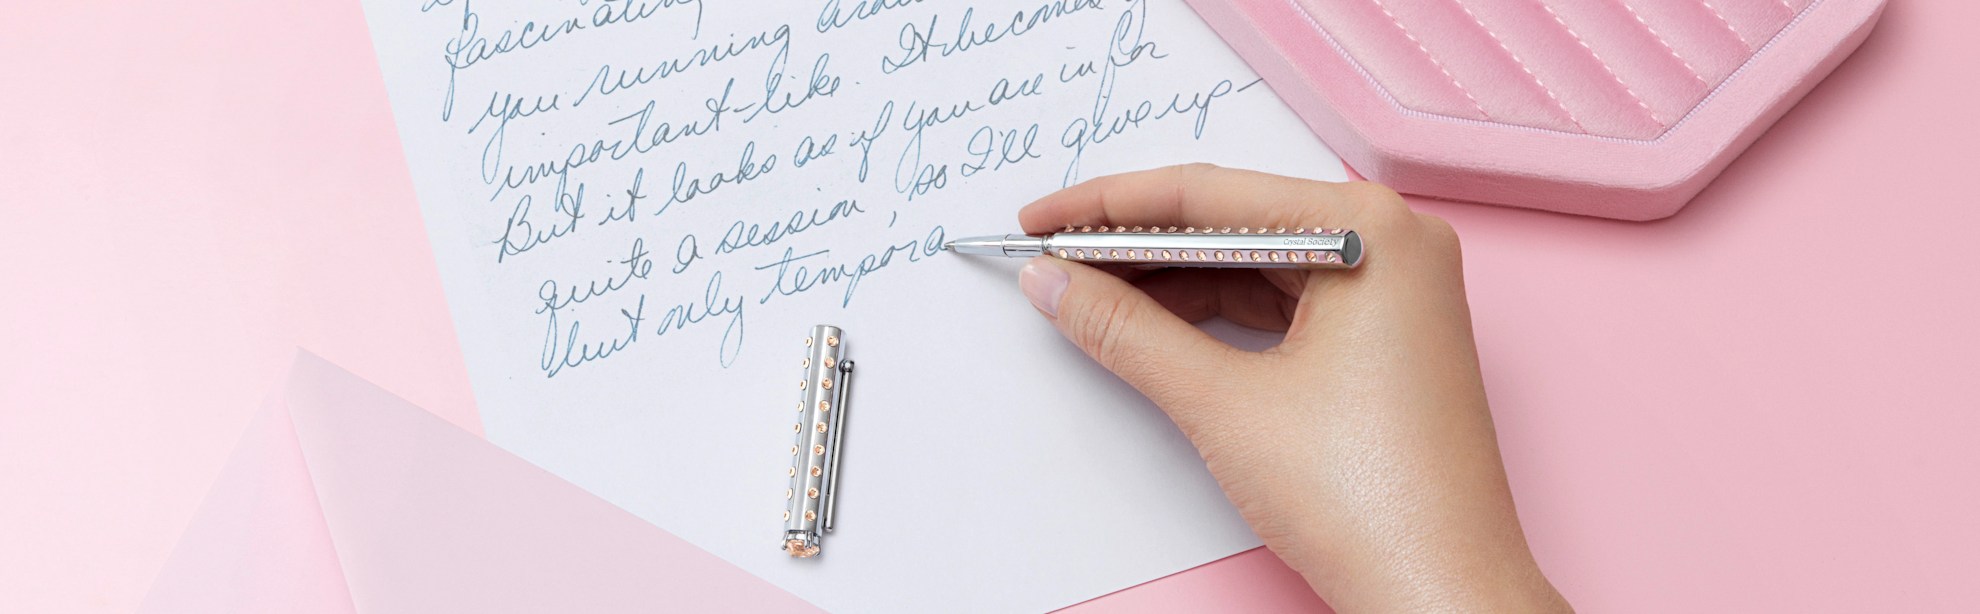 fascinating
you running
important-like. It becomes
But it looks as if you are in for
quite a session, so I'll give up-
but only tempora
Crystal Society